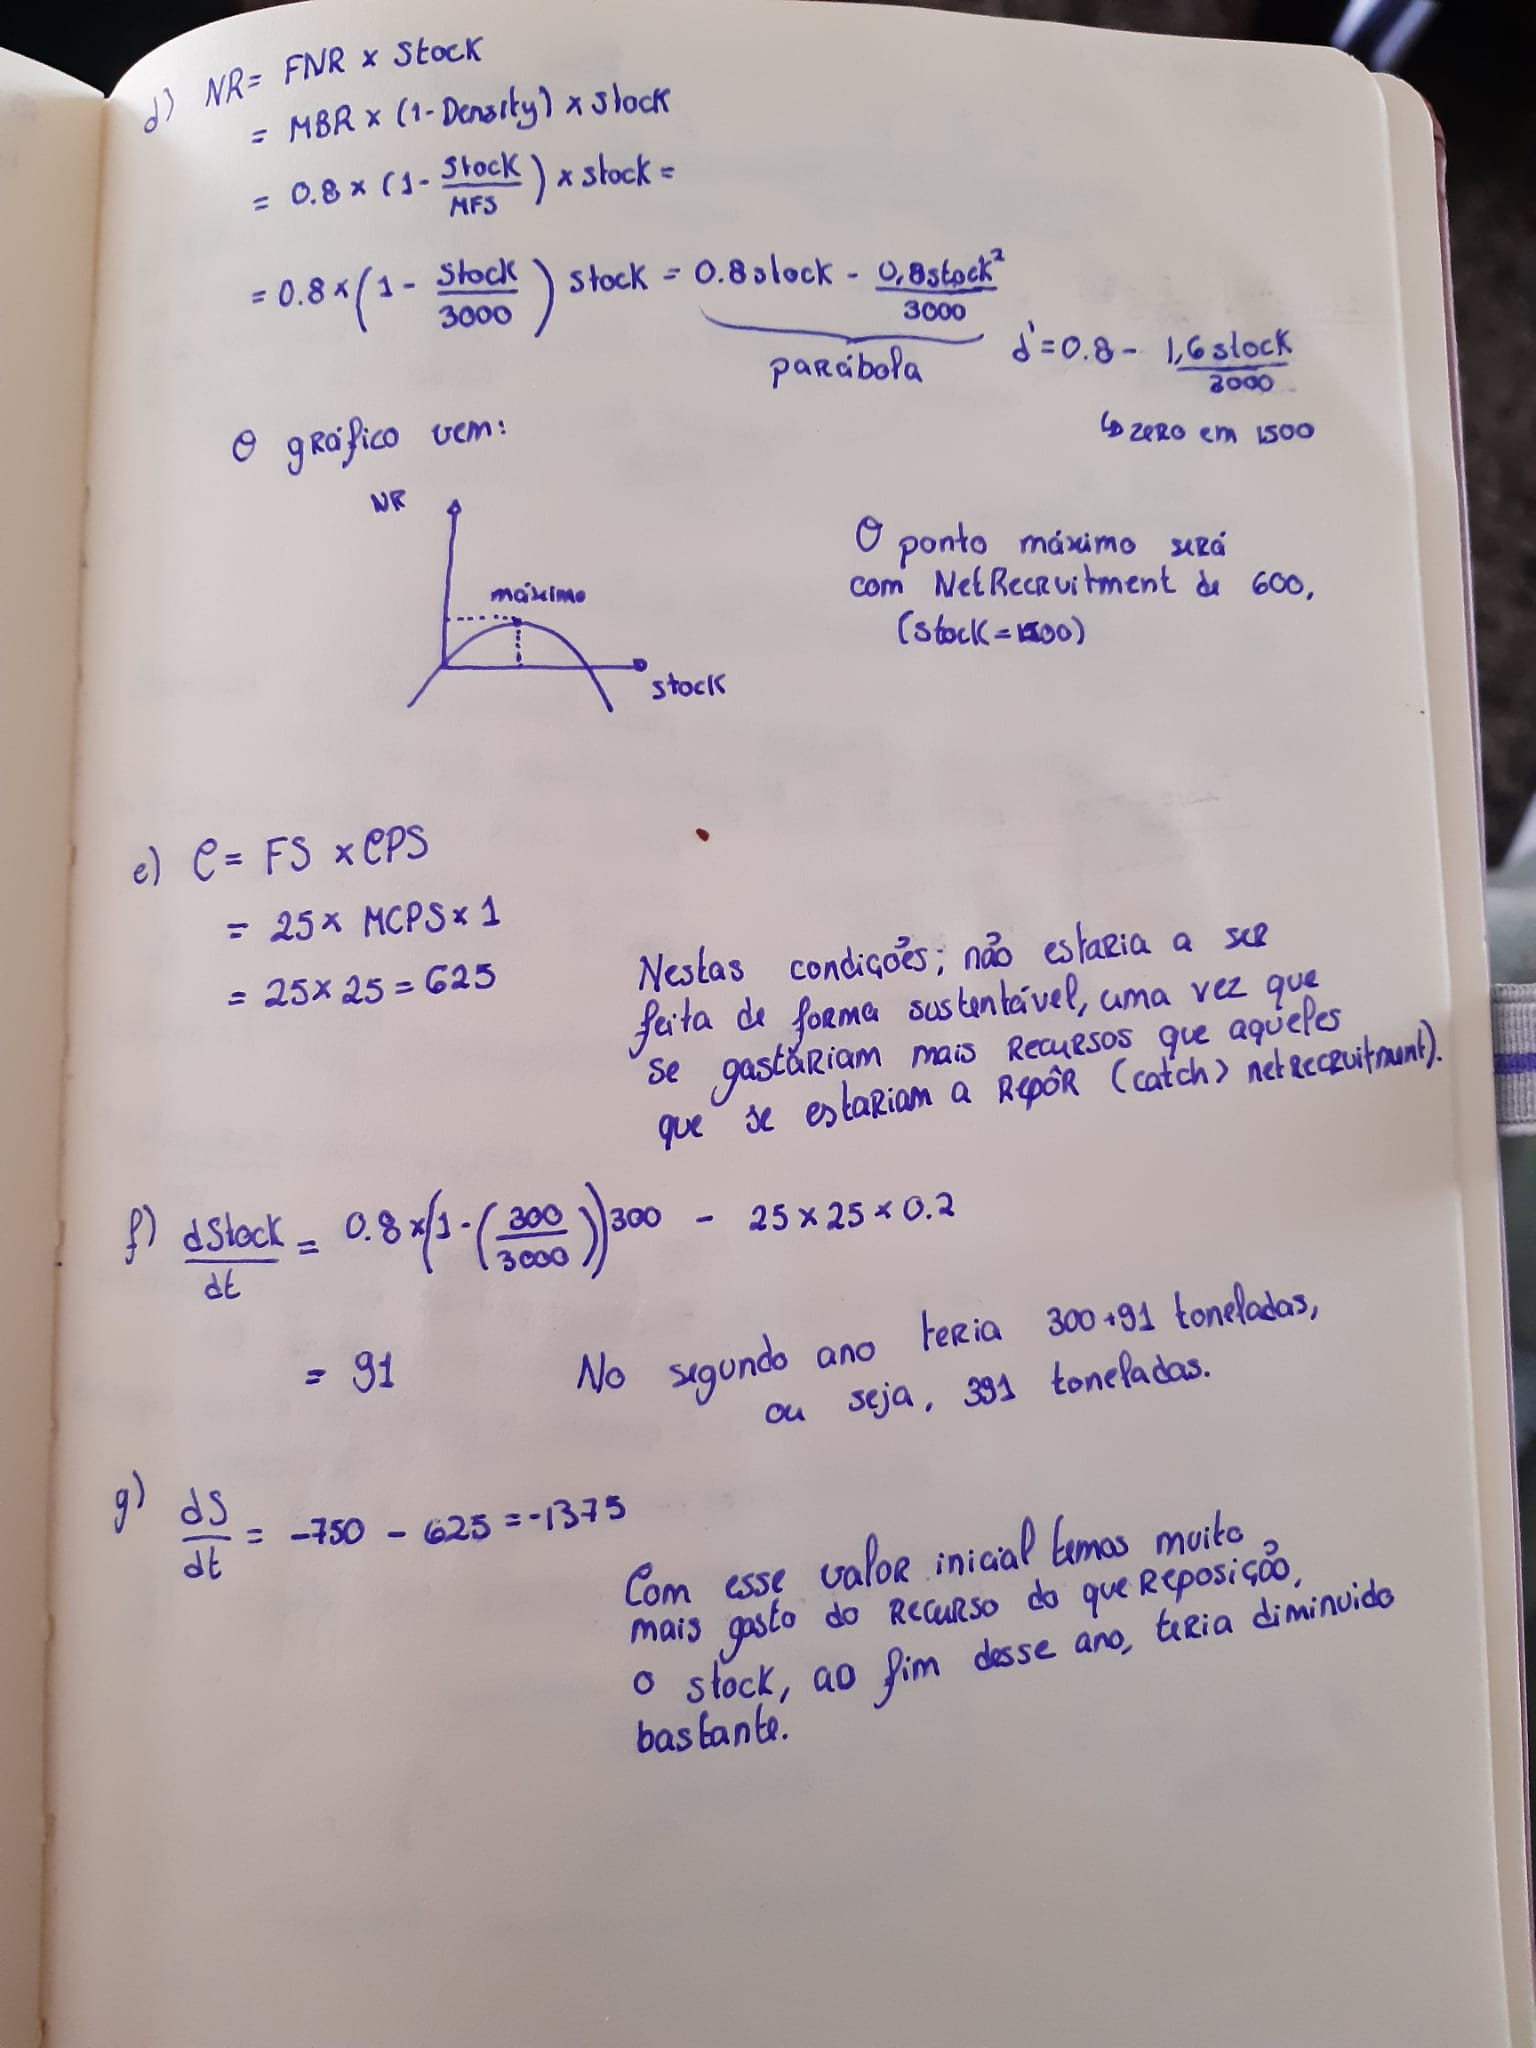 d) NR = FNR x Stock
= MBR x (1-Density) x stock
= 0.8 x (1- Stock/MFS) x stock =
= 0.8 x (1 - Stock/3000) stock = 0.8 stock - 0,8stock²/3000
parábola
d' = 0.8 - 1,6 stock/3000
↳ zero em 1500
O gráfico vem:
NR
máximo
stock
O ponto máximo será
com NetRecruitment de 600,
(stock = 1500)
e) C = FS x CPS
= 25 x MCPS x 1
= 25 x 25 = 625
Nestas condições; não estaria a ser
feita de forma sustentável, uma vez que
se gastariam mais recursos que aqueles
que se estariam a repôr (catch > netrecruitment).
f) dStock/dt = 0.8 x (1 - (300/3000)) 300 - 25 x 25 x 0.2
= 91
No segundo ano teria 300+91 toneladas,
ou seja, 391 toneladas.
g) dS/dt = -750 - 625 = -1375
Com esse valor inicial temos muito
mais gasto do recurso do que reposição,
o stock, ao fim desse ano, teria diminuido
bastante.